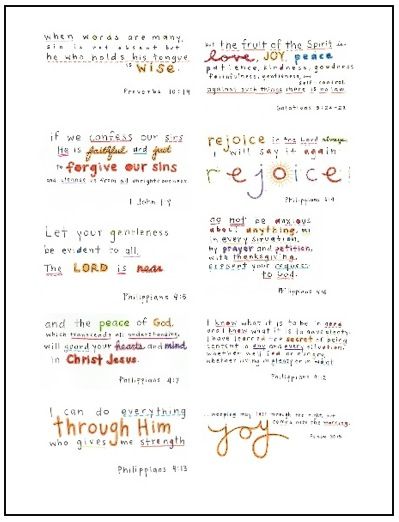 when words are many,
sin is not absent but
he who holds his tongue
is wise.
Proverbs 10:19
but the fruit of the Spirit is
love, JOY, peace
patience, kindness, goodness
faithfulness, gentleness, and
self control.
against such things there is no law.
Galatians 5:22-23
if we confess our sins
He is faithful and just
to forgive our sins
and cleanse us from all unrighteousness
1 John 1:9
rejoice in the Lord always
I will say it again
rejoice!
Philippians 4:4
Let your gentleness
be evident to all.
The LORD is near
Philippians 4:5
do not be anxious
about anything,
in every situation,
by prayer and petition,
with thanksgiving,
present your requests
to God.
Philippians 4:6
and the peace of God,
which transcends all understanding,
will guard your hearts and mind,
in Christ Jesus.
Philippians 4:7
I know what it is to be in need
and I know what it is to have plenty.
I have learned the secret of being
content in any and every situation,
whether well fed or hungry,
whether living in plenty or in want
Philippians 4:12
I can do everything
through Him
who gives me strength
Philippians 4:13
...weeping may last through the night, but
comes with the morning.
joy
Psalm 30:5